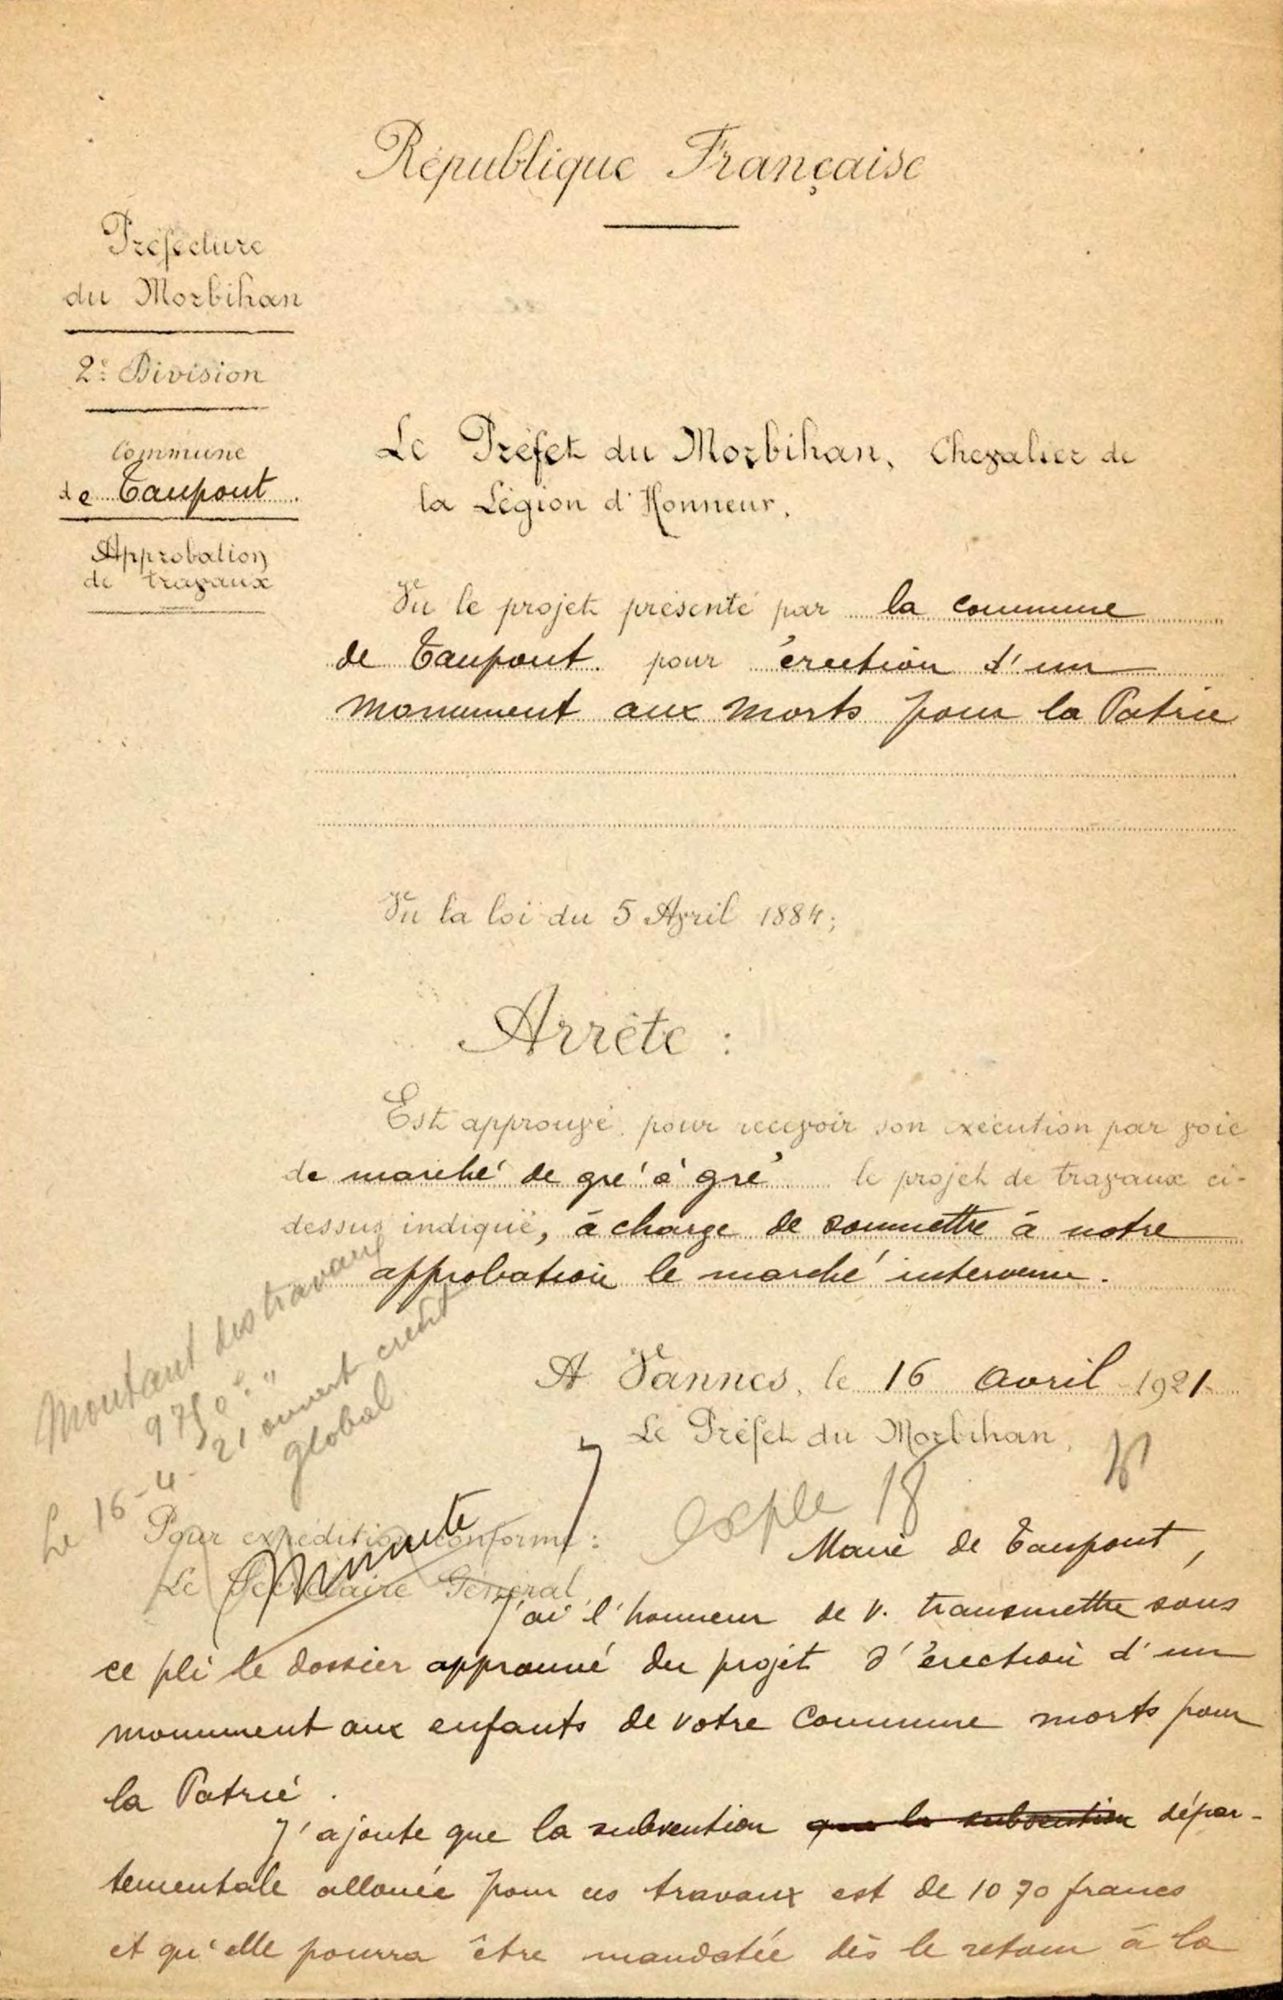 République Française
Préfecture
du Morbihan
2e Division
Commune
de Taupont.
Approbation
de travaux
Le Préfet du Morbihan, Chevalier de
la Légion d'Honneur,
Vu le projet présenté par la commune
de Taupont. pour érection d'un
monument aux morts pour la Patrie
Vu la loi du 5 Avril 1884;
Arrête :
Est approuvé, pour recevoir son exécution par voie
de marché de gré à gré le projet de travaux ci-
dessus indiqué, à charge de soumettre à notre
approbation le marché intervenu.
Montant des travaux
9750f "
Le 16-4-21 ouvert crédit
global
A Vannes, le 16 avril 1921.
Le Préfet du Morbihan,
exple 18
Pour expédition conforme :
Minute
Le Secrétaire Général,
Maire de Taupont,
J'ai l'honneur de v. transmettre sous
ce pli le dossier approuvé du projet d'érection d'un
monument aux enfants de votre Commune morts pour
la Patrie.
J'ajoute que la subvention que la subvention dépar-
tementale allouée pour ces travaux est de 1070 francs
et qu'elle pourra être mandatée dès le retour à la